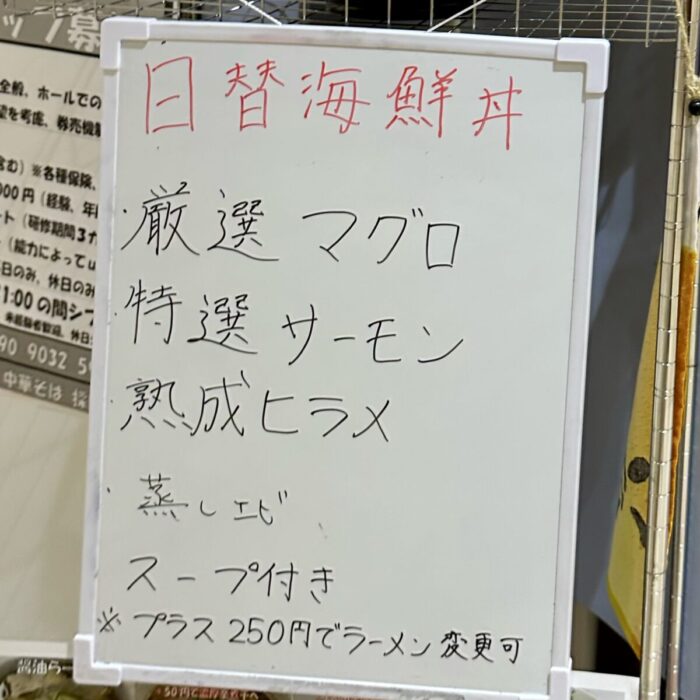 日替海鮮丼
・厳選マグロ
・特選サーモン
・熟成ヒラメ
・蒸しエビ
スープ付き
※プラス250円でラーメン変更可
ップ募
全般、ホールでの
望を考慮、券売機
含む）※各種保険、
000円（経験、年
ート（研修期間3カ
（能力によって
日のみ、休日のみ
1:00の間シフ
90 9032 5
中華そば 採
醤油らー